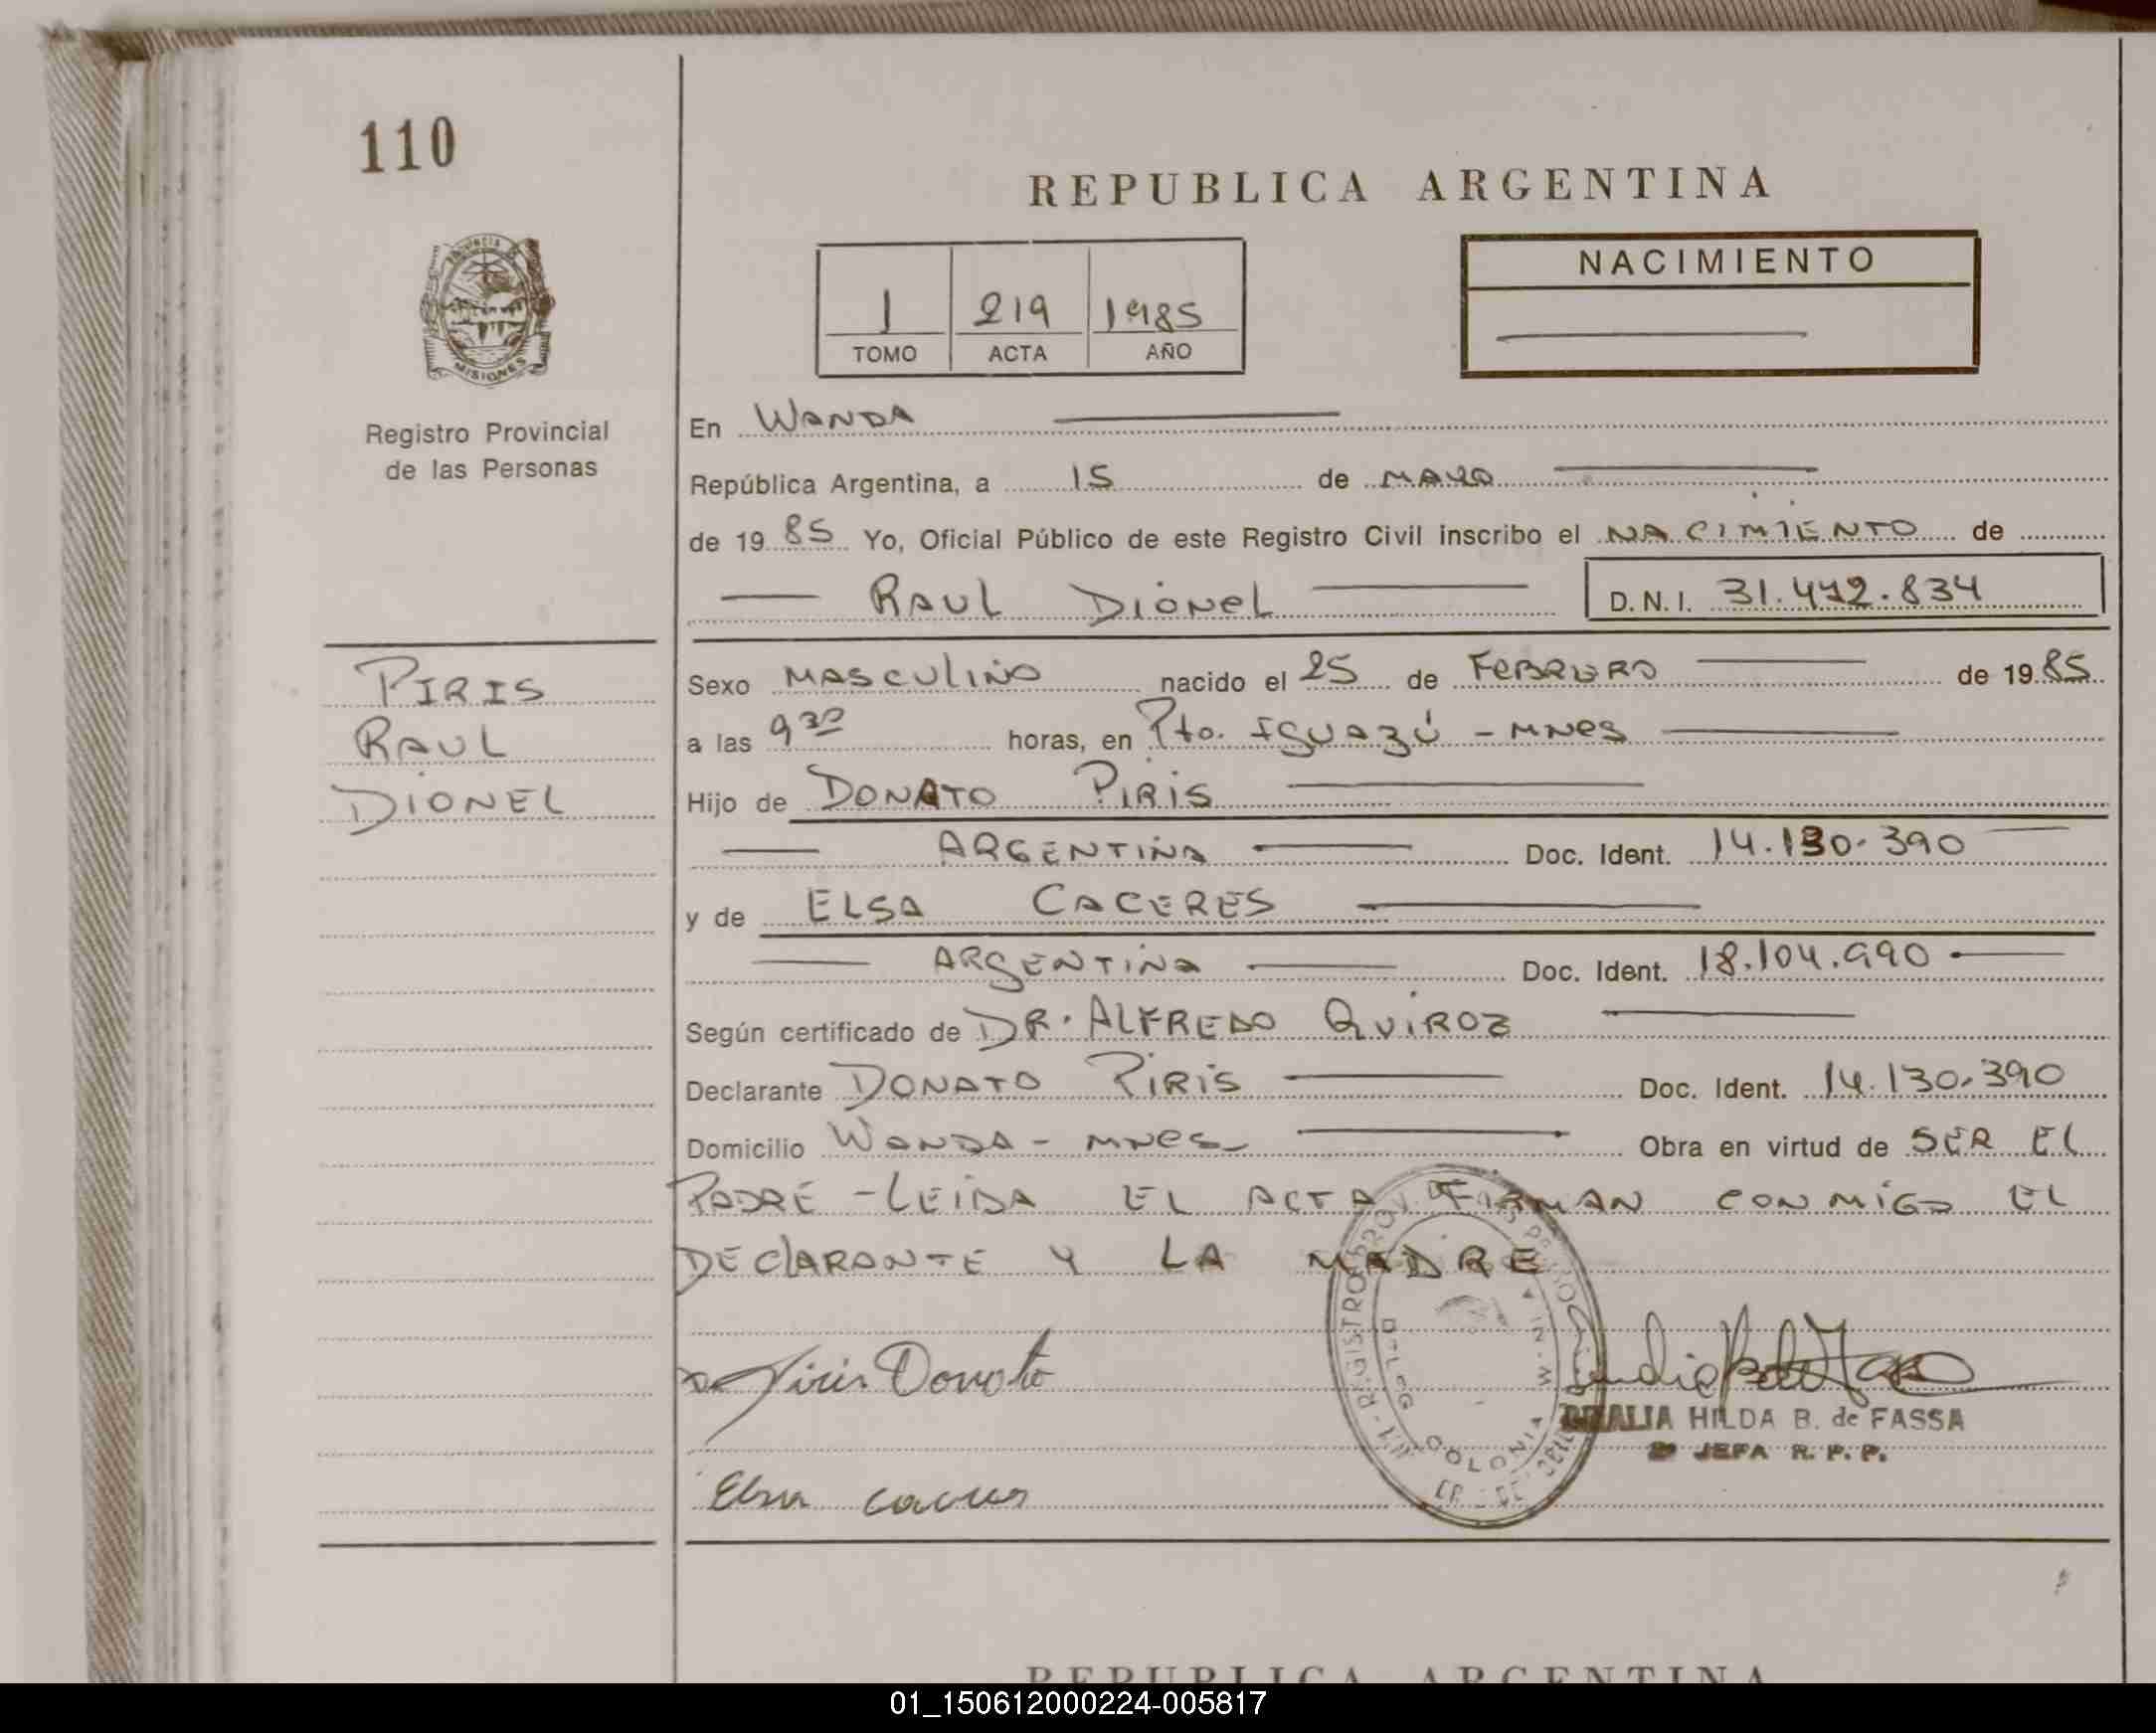 110
REPUBLICA ARGENTINA
1 219 1985
TOMO ACTA AÑO
NACIMIENTO
PROVINCIA DE
MISIONES
Registro Provincial
de las Personas
En WANDA
República Argentina, a 15 de MAYO
de 1985 Yo, Oficial Público de este Registro Civil inscribo el NACIMIENTO de
RAUL DIONEL D.N.I. 31.472.834
PIRIS
RAUL
DIONEL
Sexo MASCULINO nacido el 25 de FEBRERO de 1985
a las 9 30 horas, en Pto. IGUAZÚ - MNES
Hijo de DONATO PIRIS
ARGENTINA Doc. Ident. 14.130.390
y de ELSA CACERES
ARGENTINA Doc. Ident. 18.104.990
Según certificado de DR. ALFREDO QUIROZ
Declarante DONATO PIRIS Doc. Ident. 14.130.390
Domicilio WANDA - MNES Obra en virtud de SER EL
PADRE - LEIDA EL ACTA FIRMAN CONMIGO EL
DECLARANTE Y LA MADRE
Piris Donato
HILDA B. de FASSA
JEFA R. P. P.
COLONIA
Elsa Caceres
REPUBLICA ARGENTINA
01_150612000224-005817